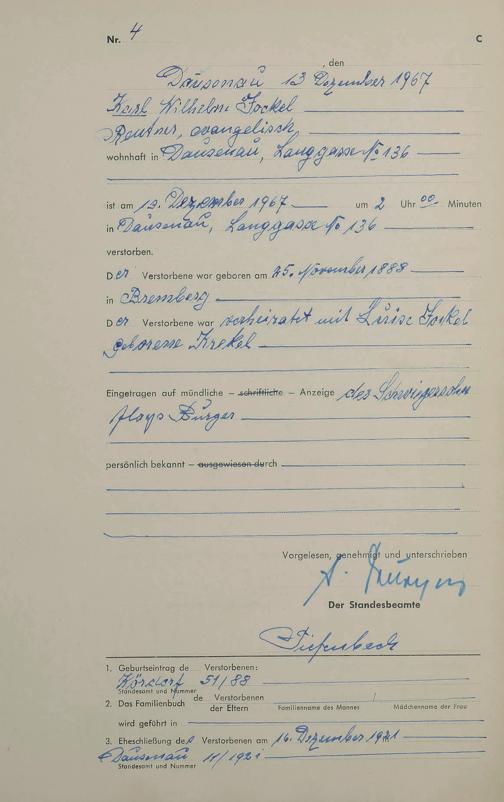 Nr. 4 C
, den
Dausenau 13 Dezember 1967
Karl Wilhelm Jockel
Rentner, evangelisch
wohnhaft in Dausenau, Langgasse No 136
ist am Dezember 1967 um 2 Uhr 00 Minuten
in Dausenau, Langgasse No 136
verstorben.
Der Verstorbene war geboren am 25. November 1888
in Bremberg
Der Verstorbene war verheiratet mit Luise Jockel
geborene Krekel
Eingetragen auf mündliche – schriftliche – Anzeige des
Bürger
persönlich bekannt – ausgewiesen durch
Vorgelesen, genehmigt und unterschrieben
A.
Der Standesbeamte
Tiefenbach
1. Geburtseintrag de Verstorbenen:
Kördorf 51/88
Standesamt und Nummer
2. Das Familienbuch de Verstorbenen / der Eltern Familienname des Mannes / Mädchenname der Frau
wird geführt in
3. Eheschließung des Verstorbenen am 16. Dezember 1921
Dausenau 11/1921
Standesamt und Nummer